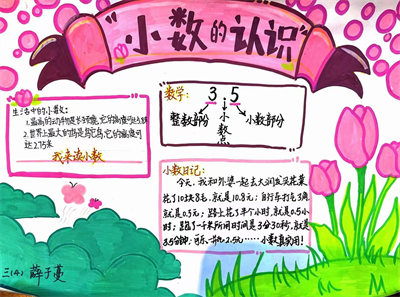 "小数的认识"
生活中的小数:
1.最高的动物是长颈鹿,它的高度可达5.8米
2.世界上最大的鸟是鸵鸟,它的高度可
达2.75米
我来读小数
数学:
3.5
整数部分 小数点 小数部分
小数日记:
今天,我和外婆一起去大润发买花菜
花了10块8毛,就是10.8元;自行车打气3角
就是0.3元;路上花了半个小时,就是0.5小
时;跑了一千米所用时间是3分30秒,就是
3.5分钟,可乐一瓶2.5元……小数真实用!
三(4) 薛子蔓